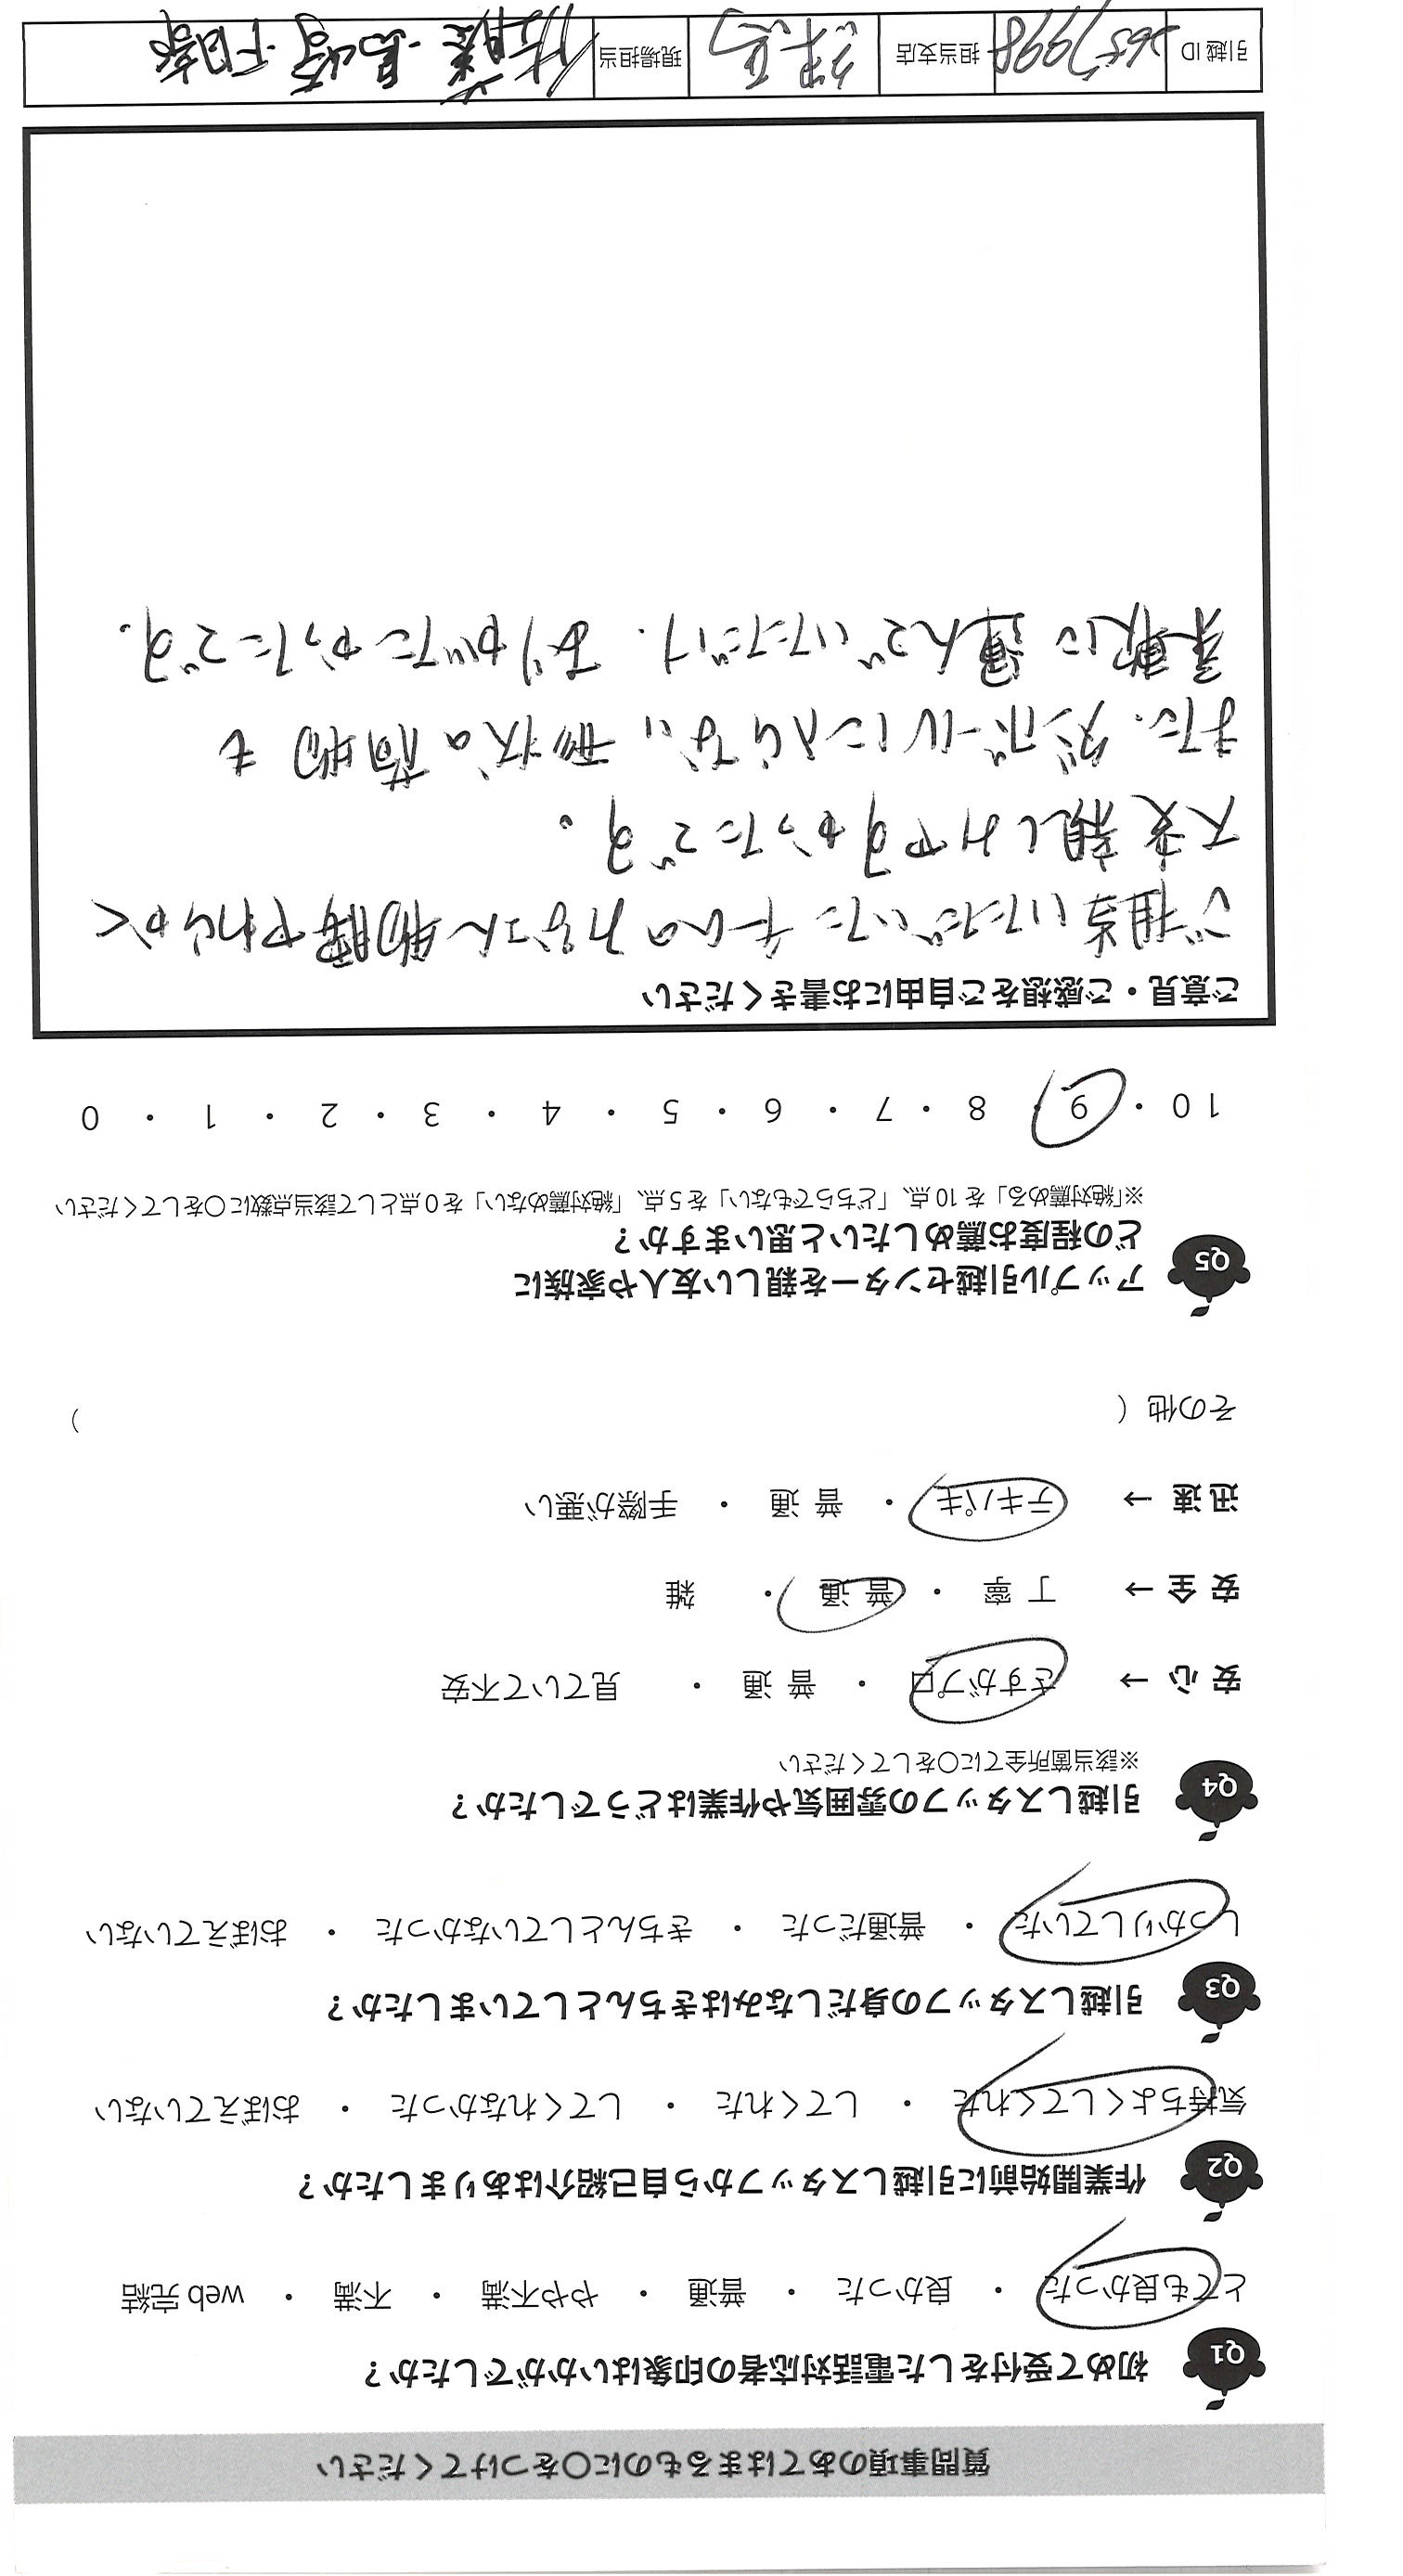 質問事項のあてはまるものに〇をつけてください
Q1 初めて受付をした電話対応者の印象はいかがでしたか？
とても良かった ・ 良かった ・ 普通 ・ やや不満 ・ 不満 ・ web 完結
Q2 作業開始前に引越しスタッフから自己紹介はありましたか？
気持ちよくしてくれた ・ してくれた ・ してくれなかった ・ おぼえていない
Q3 引越しスタッフの身だしなみはきちんとしていましたか？
しっかりしていた ・ 普通だった ・ きちんとしていなかった ・ おぼえていない
Q4 引越しスタッフの雰囲気や作業はどうでしたか？
※該当箇所全てに〇をしてください
安 心 → さすがプロ ・ 普 通 ・ 見ていて不安
安 全 → 丁 寧 ・ 普 通 ・ 雑
迅 速 → テキパキ ・ 普 通 ・ 手際が悪い
その他（ ）
Q5 アップル引越センターを親しい友人や家族に
どの程度お薦めしたいと思いますか？
※「絶対薦める」を 10 点、「どちらでもない」を 5 点、「絶対薦めない」を 0 点として該当点数に〇をしてください
10 ・ 9 ・ 8 ・ 7 ・ 6 ・ 5 ・ 4 ・ 3 ・ 2 ・ 1 ・ 0
ご意見・ご感想をご自由にお書きください
ご担当いただいた チームのみなさん 物腰やわらかく
大変親しみやすかったです。
また、ダンボールに入らない 形状の荷物 も
柔軟に 運んでいただけ、ありがたかったです。
引越 ID 2657998 担当支店 練馬 現場担当 佐藤 島崎 日部